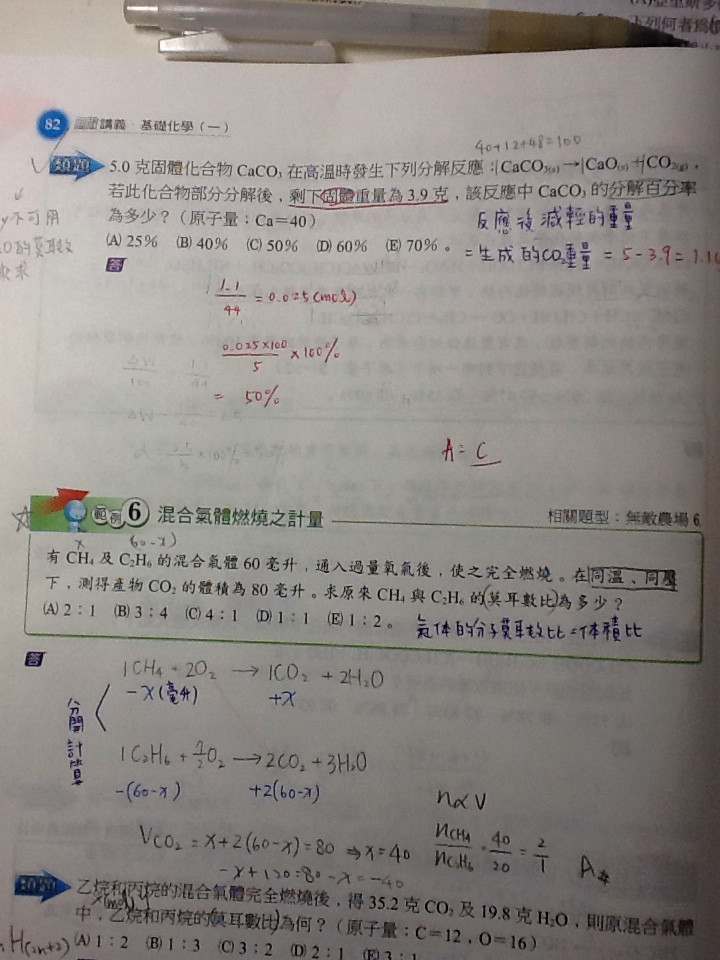 (A)
下列何者為
82 講義‧基礎化學(一)
40+12+48=100
類題 5.0 克固體化合物 CaCO₃ 在高溫時發生下列分解反應:1CaCO₃(s)→1CaO(s)+1CO₂(g),
若此化合物部分分解後,剩下固體重量為 3.9 克,該反應中 CaCO₃ 的分解百分率
為多少?(原子量:Ca=40)
不可用
反應後減輕的重量
(A) 25% (B) 40% (C) 50% (D) 60% (E) 70%。
=生成的CO₂重量 = 5-3.9=1.1
答
1.1/44 = 0.025(mol)
0.025×100/5 ×100%
= 50%
A= C
範例 6 混合氣體燃燒之計量 相關題型:無敵農場 6
x (60-x)
有 CH₄ 及 C₂H₆ 的混合氣體 60 毫升,通入過量氧氣後,使之完全燃燒。在同溫、同壓
下,測得產物 CO₂ 的體積為 80 毫升。求原來 CH₄ 與 C₂H₆ 的(莫耳數比)為多少?
(A) 2:1 (B) 3:4 (C) 4:1 (D) 1:1 (E) 1:2。
氣体的分子莫耳數比=体積比
答
1CH₄+2O₂ → 1CO₂+2H₂O
-x(毫升) +x
分開計算
1C₂H₆+7/2O₂→2CO₂+3H₂O
-(60-x) +2(60-x)
n∝V
VCO₂ = x+2(60-x)=80 ⇒x=40
nCH₄/nC₂H₆=40/20=2/1 A
-x+120=80 -x=-40
類題 乙烷和丙烷的混合氣體完全燃燒後,得 35.2 克 CO₂ 及 19.8 克 H₂O,則原混合氣體
x(mol) y
中,乙烷和丙烷的(莫耳數比)為何?(原子量:C=12,O=16)
H(2n+2)
(A) 1:2 (B) 1:3 (C) 3:2 (D) 2:1 (E) 3:1